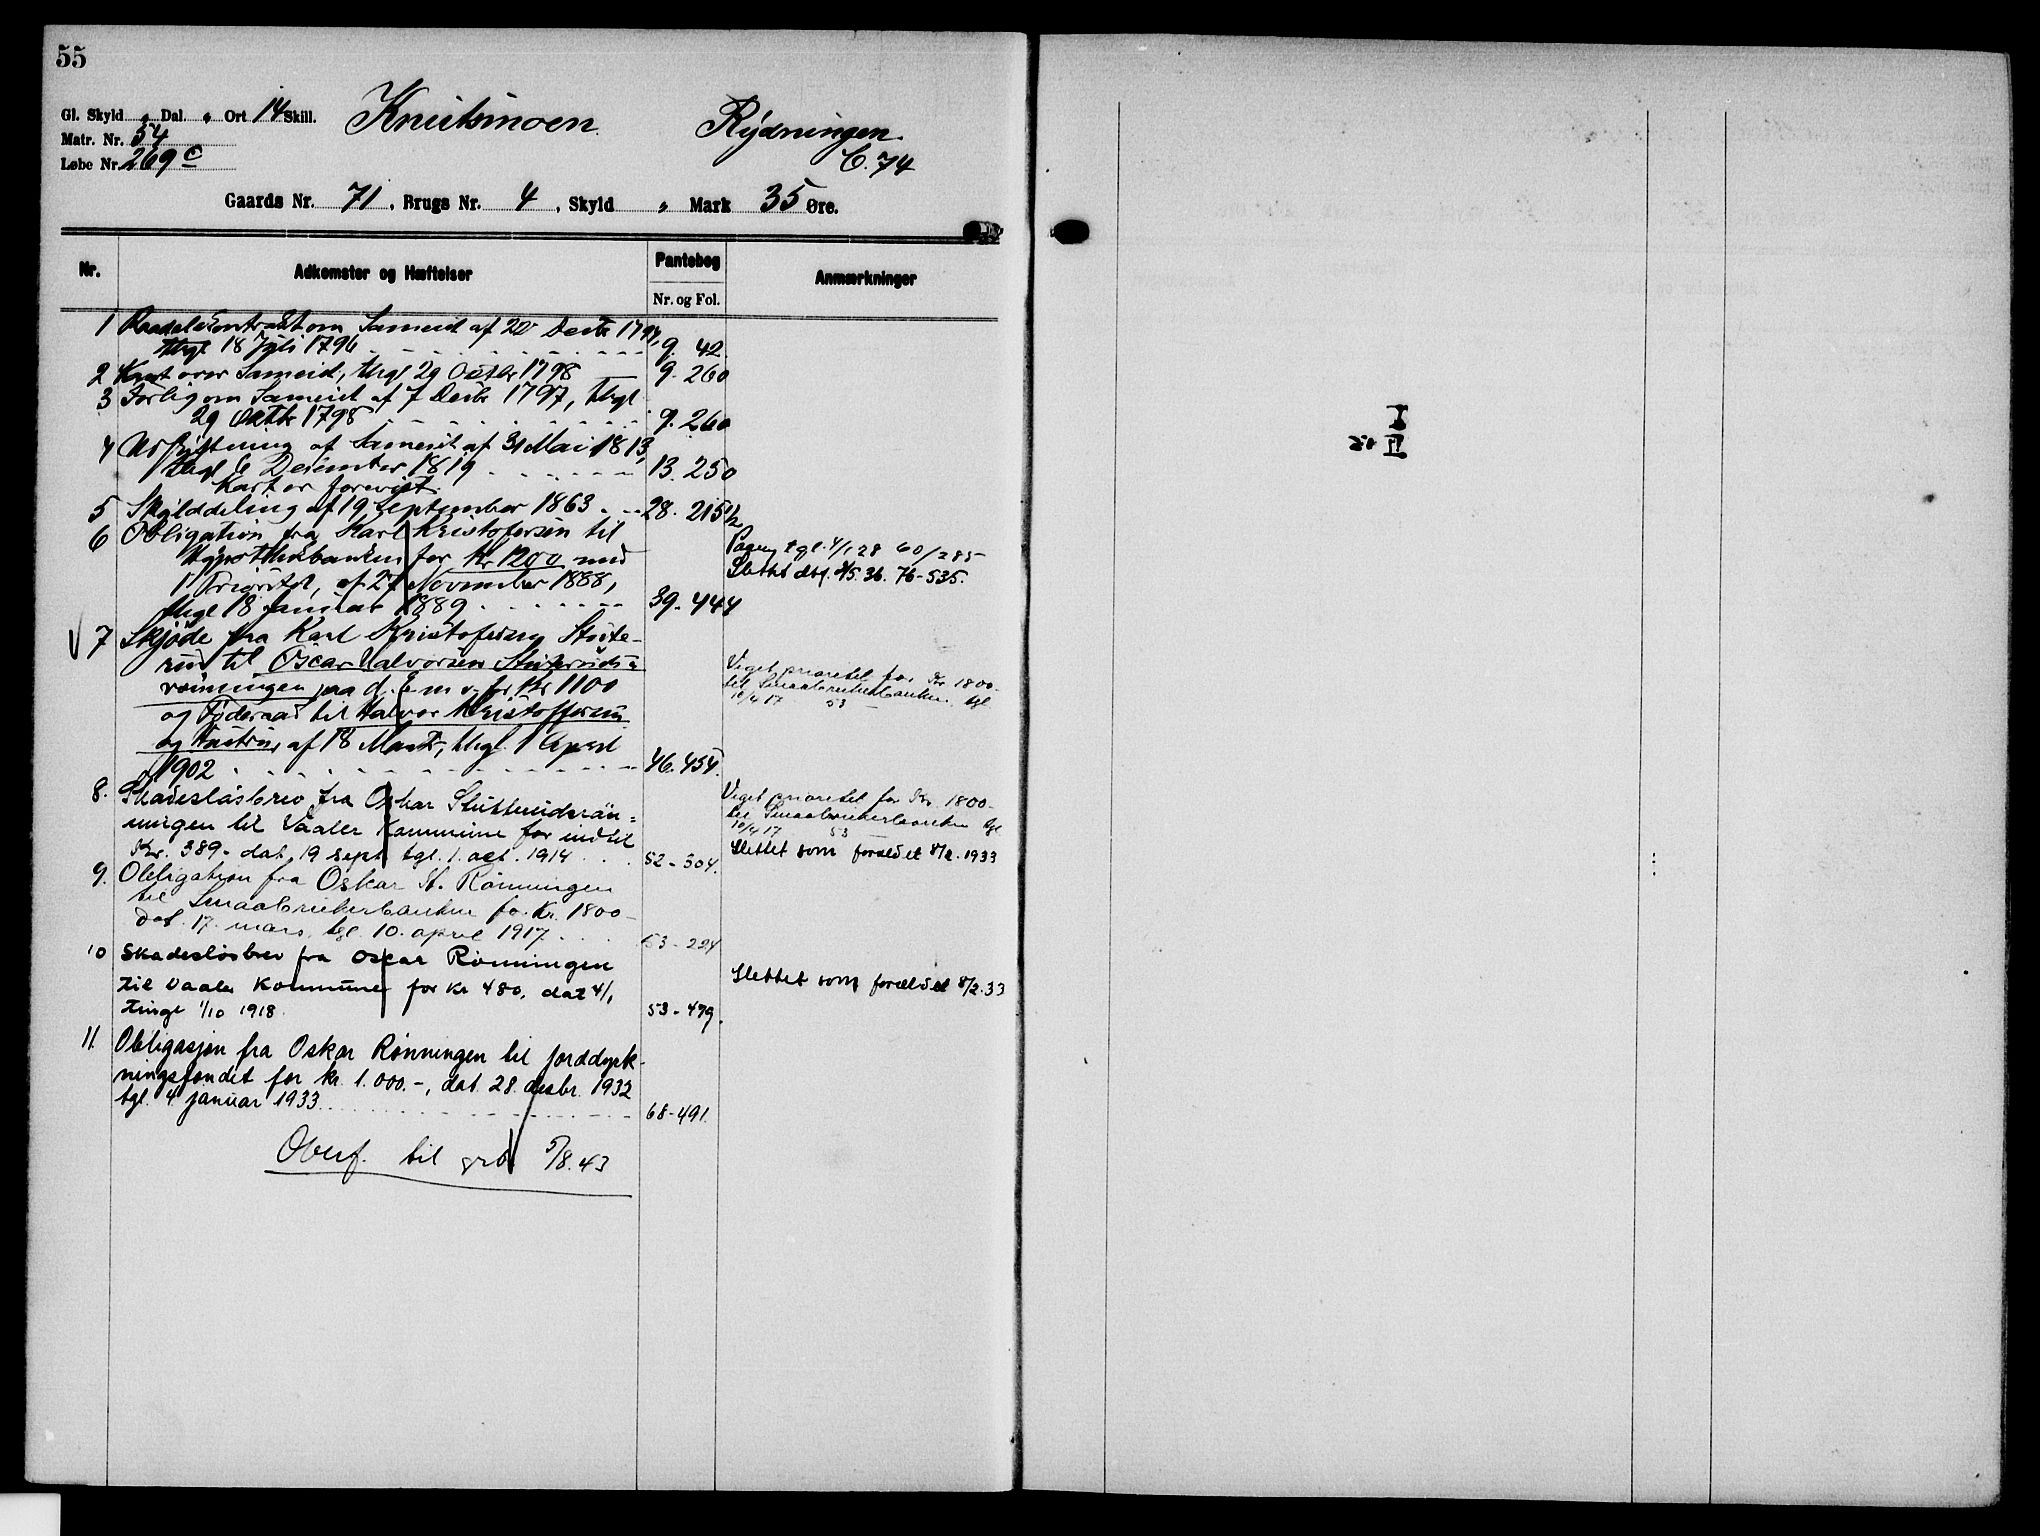 55
Gl. Skyld „ Dal. „ Ort 14 Skill. Knutsmoen. Rydningen.
Matr. Nr. 54
Løbe Nr. 269 c C. 74
Gaards Nr. 71, Brugs Nr. 4, Skyld „ Mark 35 Øre.
Nr. Adkomster og Hæftelser Pantebog Anmærkninger
Nr. og Fol.
1 om Sameiet af 20 Decbr 1794,
thgl 18 Juli 1796 9. 42.
2 Kart over Sameiet, thgl 29 Octbr 1798 9. 260
3 Forlig om Sameiet af 7 Decbr 1797, thgl
29 Octbr 1798 9. 260
4 Udskiftning af Sameiet af 31 Mai 1813,
thgl 6 December 1819 13. 250
Kart er forevist.
5 Skylddeling af 19 September 1863 28. 215 1/2
6 Obligation fra Karl Kristofersen til
Hypothekbanken for Kr 1200 med
1 Prioritet, af 27 November 1888,
thgl 18 Januar 1889 39-444
tgl. 4/1 28 60/285
Slettet 76-535.
7 Skjøde fra Karl Kristofersen Stute-
rud til Oscar Halvorsen Stuteruds-
rønningen paa d. E m v for Kr 1100
og Føderaad til Halvor Kristoffersen
og Hustru, af 18 Marts, thgl. 1 April
1902 46.454.
Veget prioritet for Kr 1800-
til Smaabrukerbanken tgl
10/4 17 53
8. Skadesløsbrev fra Oskar Stutterudsrøn=
ningen til Vaaler Kommune for indtil
Kr. 389- dat. 19 sept tgl. 1. oct. 1914 52-304.
Veget prioritet for Kr. 1800-
til Smaabrukerbanken tgl
10/4 17 53
Slettet som foreldet 8/2. 1933
9. Obligation fra Oskar St. Rønningen
til Smaabrukerbanken for Kr. 1800-
dat. 17. mars, tgl. 10. april 1917 53-224
10 Skadesløsbrev fra Oscar Rønningen
til Vaaler Kommune for Kr 480, dat 4/1
tingl 1/10 1918. 53-479.
Slettet som foreldet 8/2.33
11. Obligasjon fra Oskar Rønningen til jorddyrk-
ningsfondet for kr. 1.000.-, dat. 28. desbr. 1932
tgl. 4 januar 1933 68-491.
Overf. til grb 5/8.43